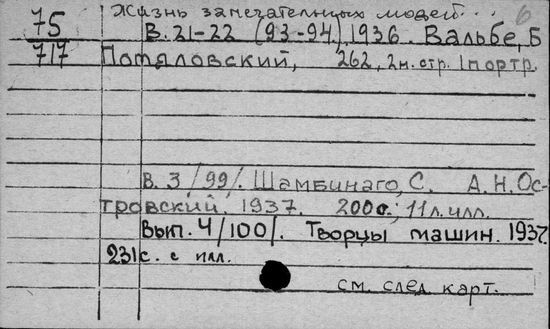 75 Жизнь замечательных людей... 6
В. 21-22 (93-94), 1936. Вальбе, Б
717 Помяловский, 262, 2н. стр. 1 портр.
В. 3 /99/. Шамбинаго, С. А.Н. Ос-
тровский. 1937. 200 с.; 11 л. илл.
Вып. 4/100/. Творцы машин. 1937.
231 с. с илл.
см. след. карт.